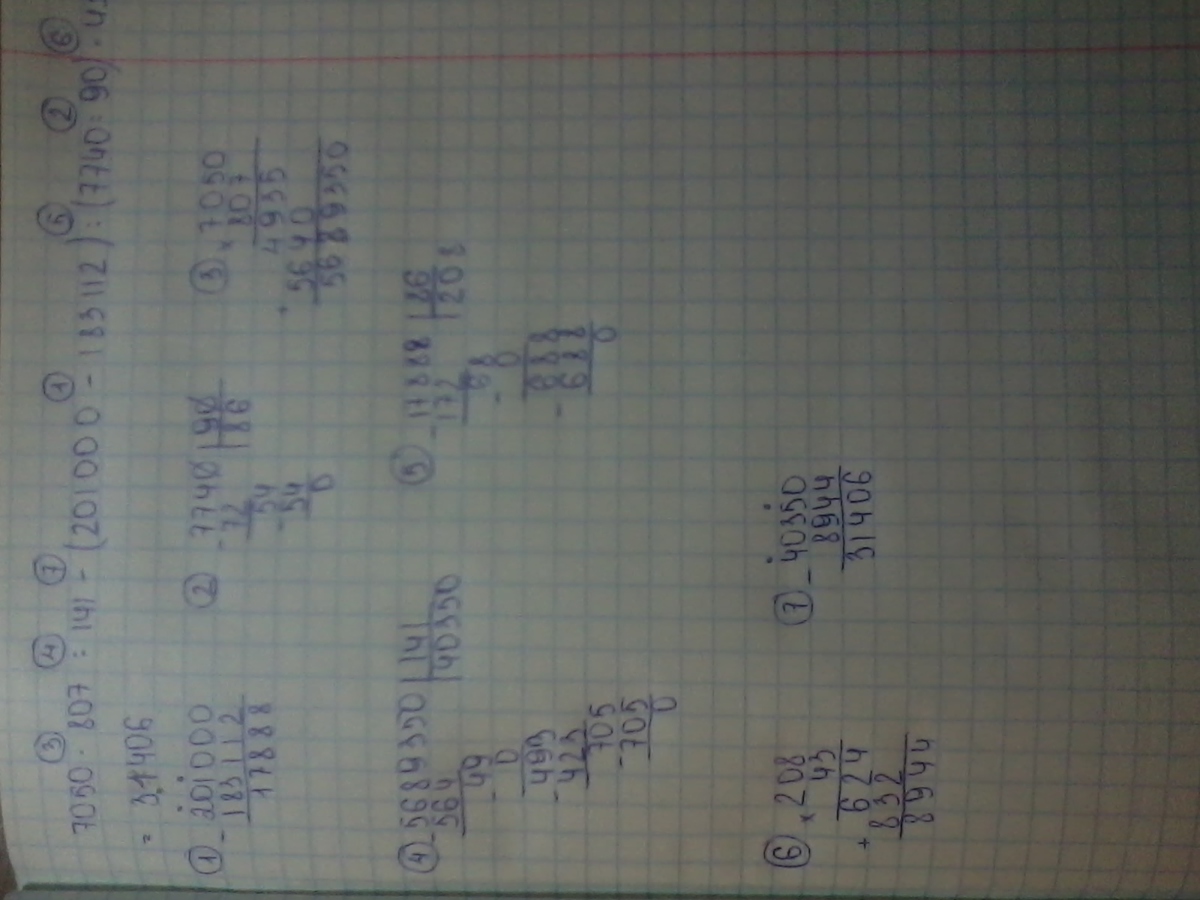 ③ ④ ⑦ ① ⑤ ② ⑥
7050 · 807 : 141 - (201000 - 183112) : (7740 : 90) · 43
= 31406
① - 201000
183112
17888
② - 7740 | 90
72 | 86
54
- 54
0
③ × 7050
807
4935
+ 5640
5689350
④ - 5689350 | 141
564 | 40350
- 49
0
- 493
423
- 705
705
0
⑤ - 17888 | 86
172 | 208
- 68
0
- 688
688
0
⑥ × 208
43
+ 624
832
8944
⑦ - 40350
8944
31406